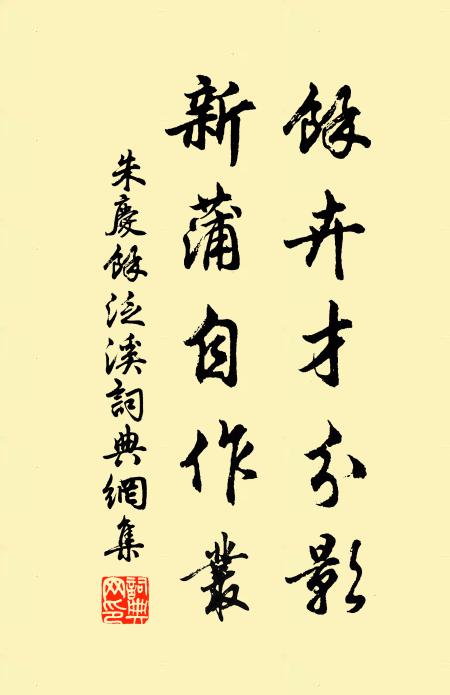 餘卉才分影
新蒲自作叢
朱慶餘泛溪詞典網集
詞典網印